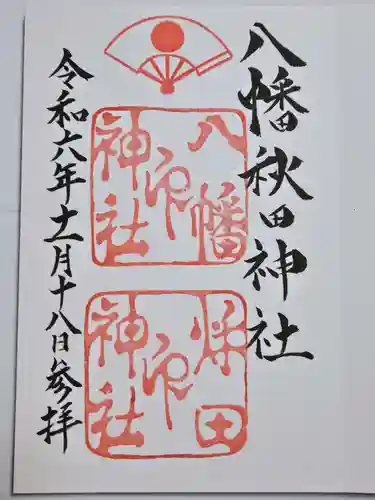 八幡秋田神社
八幡
神社印
秋田
神社印
令和六年十一月十八日参拝